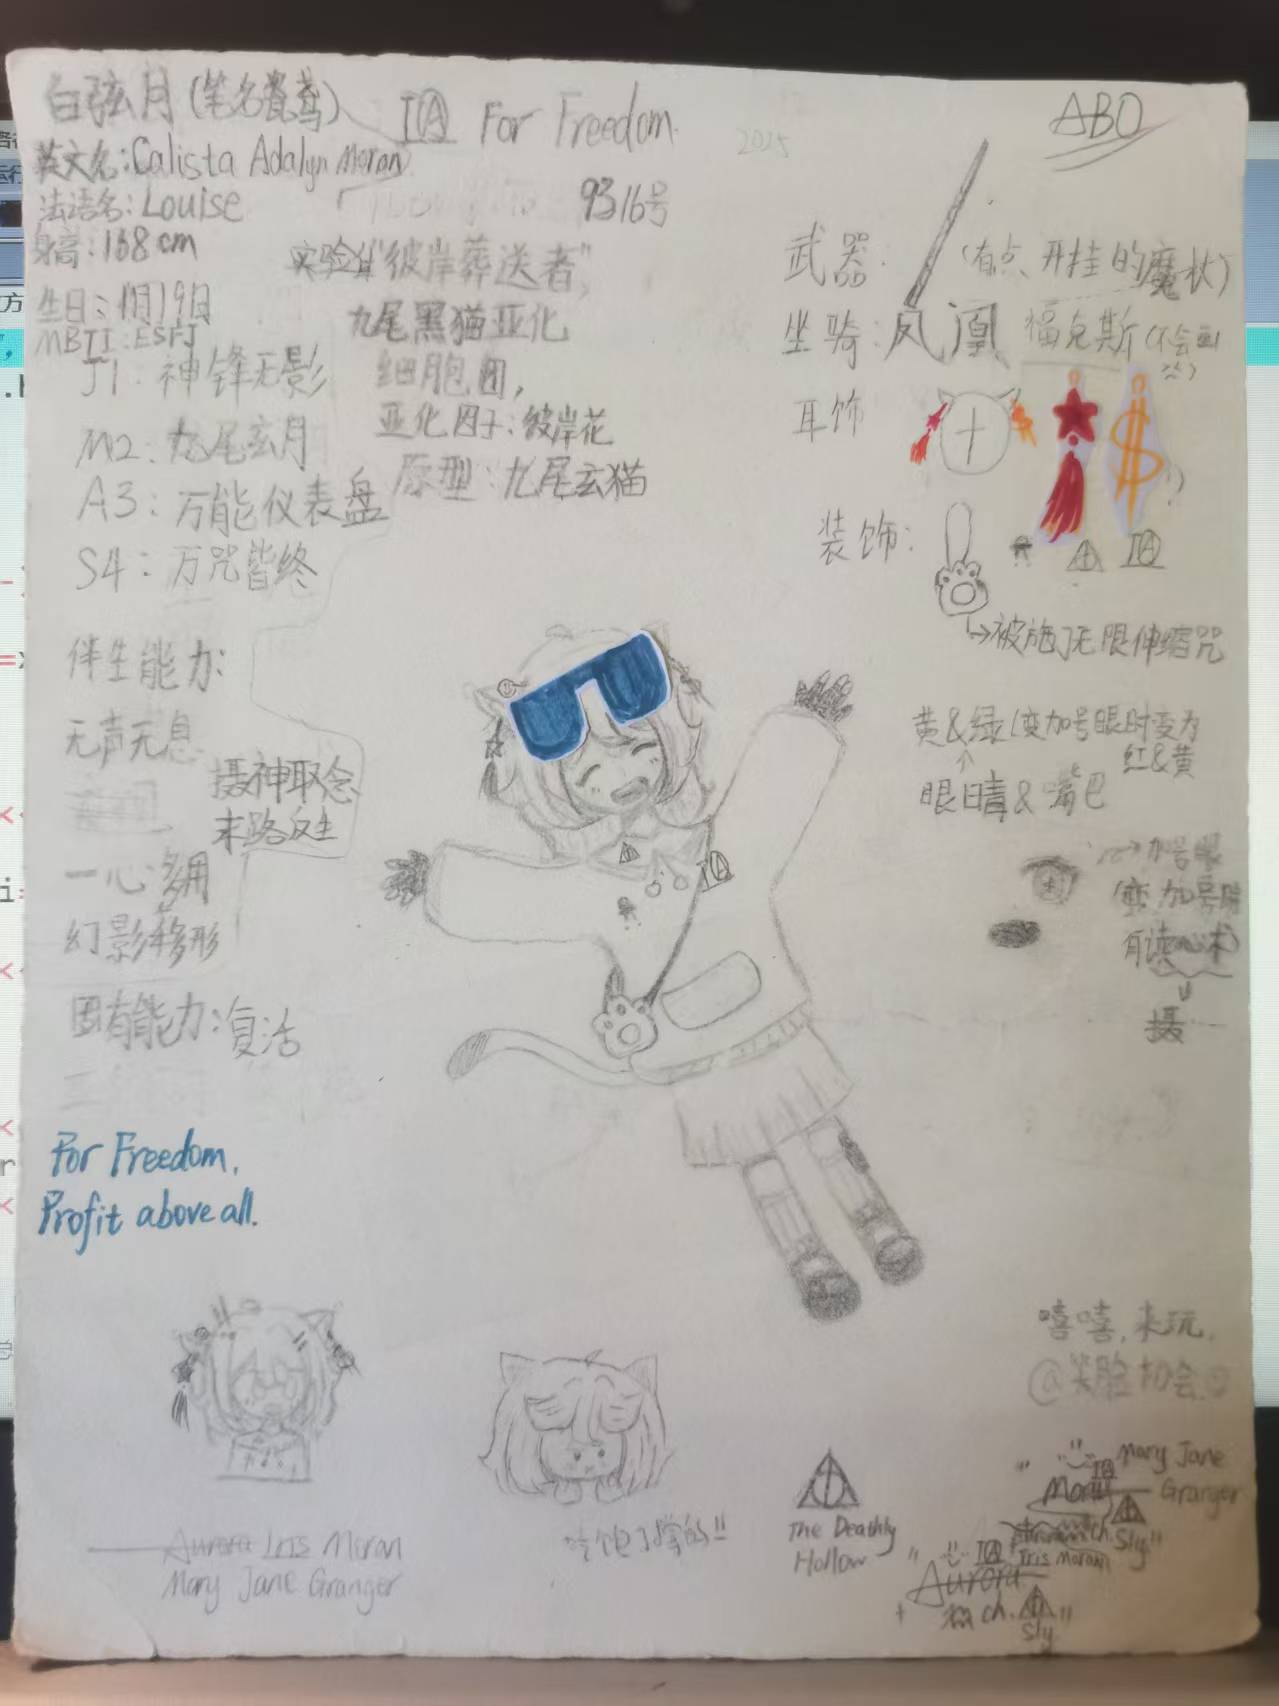 白弦月(笔名鸳鸢)
IA For Freedom.
2025
ABO
英文名:Calista Adalyn Moran
法语名:Louise
9316号
身高:168cm
生日:1月19日
MBTI:ESFJ
实验体"彼岸葬送者",
九尾黑猫亚化
细胞团,
亚化因子:彼岸花
原型:九尾玄猫
J1:神锋无影
M2:九尾玄月
A3:万能仪表盘
S4:万咒皆终
武器:
(有点开挂的魔杖)
坐骑:凤凰 福克斯(不会画
耳饰
装饰:
IA
→被施了无限伸缩咒
伴生能力:
无声无息
摄神取念
末路反生
一心多用
幻影移形
固有能力:复活
黄&绿(变加号眼时变为
红&黄
眼睛&嘴巴
加号眼
(变加号眼
有读心术)
摄
IA
For Freedom,
Profit above all.
嘻嘻,来玩,
@笑脸协会
Aurora Iris Moran
Mary Jane Granger
吃饱了撑的!!
The Deathly
Hollow
Mary Jane
Granger
IA
Sly"
IA
Iris Moran
Aurora
ch.
Sly"